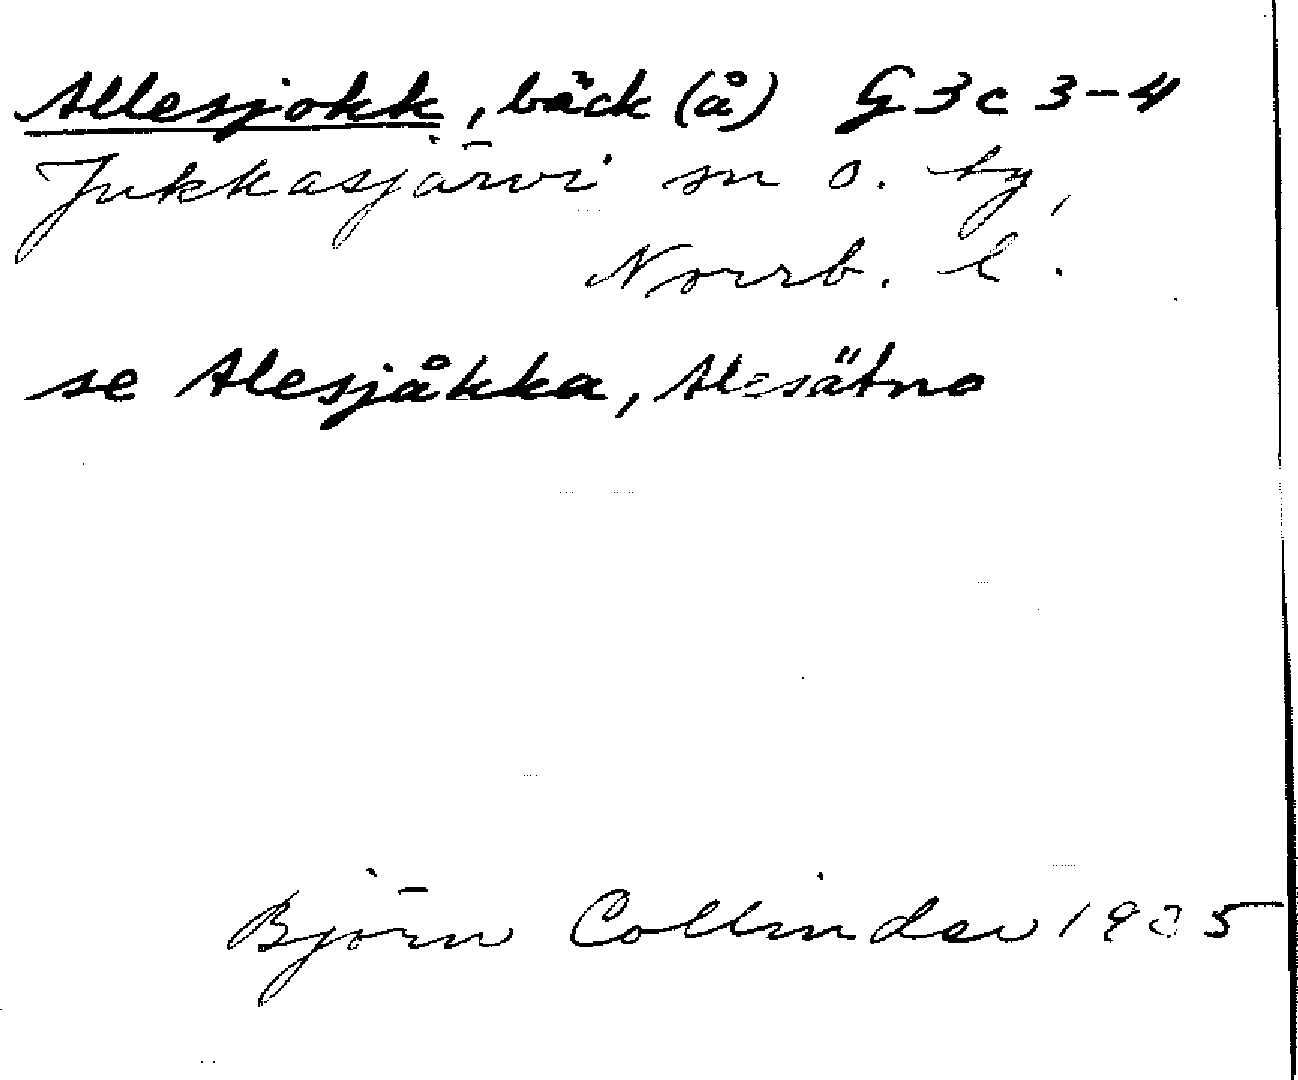 Allesjokk, bäck (å) G3c 3-4
Jukkasjärvi sn o. by,
Norrb. l.
se Alesjåkka, Alesätno
Björn Collinder 1935